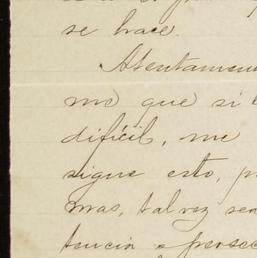 se hace.
Atentamen
me que si
difícil, me
sigue esto, p
mas, tal vez sea
tencia o persec